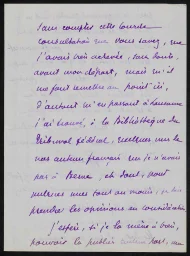 Sans compter cette lourde
consultation que vous savez, que
j'avais crû achevée, sans doute,
avant mon départ, mais qu'il
me faut remettre au point ici,
D'autant qu'en passant à Lausanne
j'ai trouvé, à la Bibliothèque du
Tribunal fédéral, quelques
auteurs français que je n'avais
pas à Berne, et dont,
tout au moins,
prendre les opinions en considération.
J'espère, si je la mène à bien,
pouvoir la publier